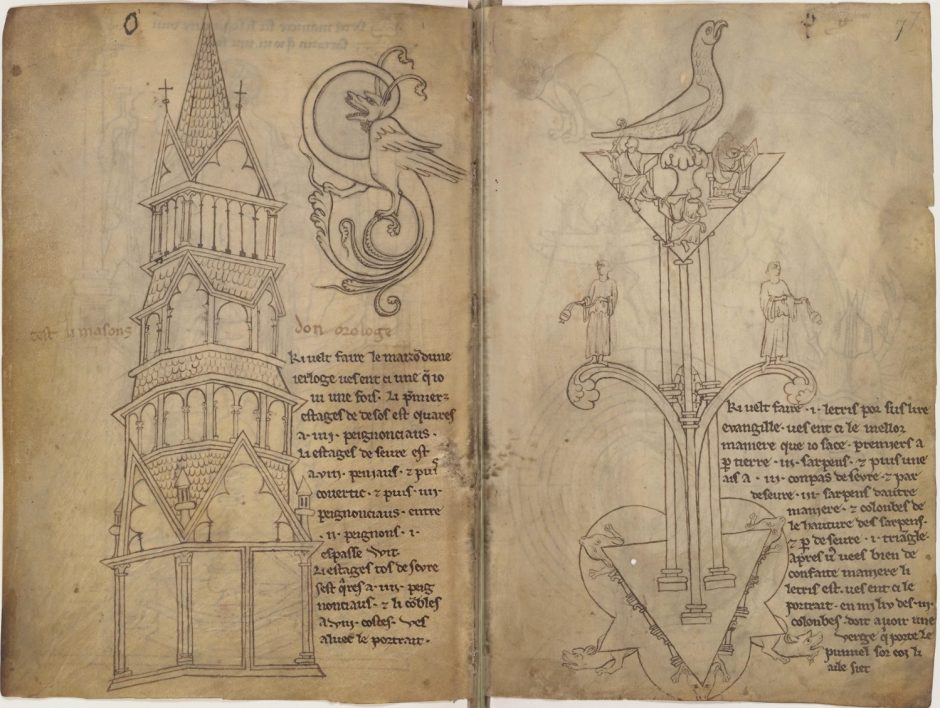 cest li masons
don orologe
Ki velt faire le maizo dune
ierloge ves ent ci une q̃ io
vi une fois · Li p̃mier
estages de desos est quares
a · iiii · peignonciaus ·
Li estages de seure est
a viii peniaus · ⁊ puis
covertic · ⁊ puis · iiii
peignonciaus · entre
· ii · peignons · i ·
espasse vuit
Li estages tos de sevre
sest q̃res a · iiii · peig
nonciaus · ⁊ li cōbles
a viii · costes · ves
aluec le portrait ·
77
Ki velt faire · i · letris por sus lire
evangille · ves ent ci le mellor
maniere que io sace · premiers a
p̱ tierre · iii · sarpens · ⁊ puis une
ais a · iii · conpas desevre ⁊ par
deseure · iii · sarpens dautre
maniere · ⁊ colonbes de
le hauture des sarpens ·
⁊ p̱ deseure · i · triangle ·
apres vees bien de
confaite maniere li
letris est · ves ent ci le
portrait · en mi liu des · iii ·
colonbes · doit avoir une
verge q̃ porte le
pumiel sor coi li
aile siet